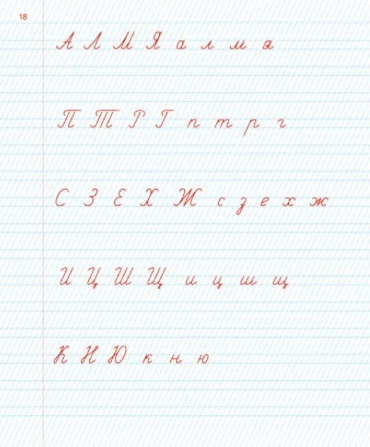 18
А Л М Я а л м я
П Т Р Г п т р г
С З Е Х Ж с з е х ж
И Ц Ш Щ и ц ш щ
К Н Ю к н ю